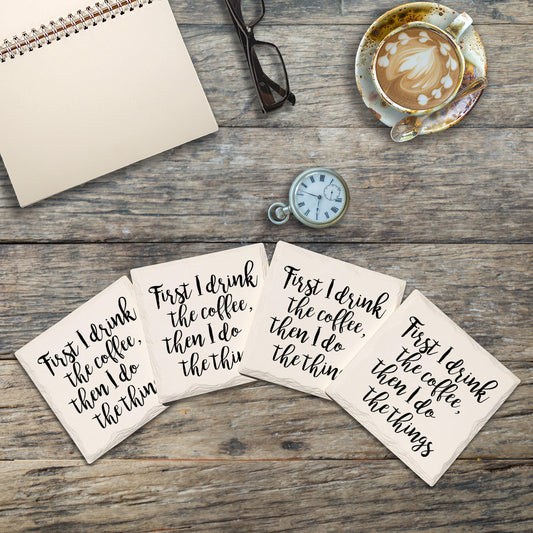 First I drink
the coffee,
then I do
the thing
First I drink
the coffee,
then I do
the thing
First I drink
the coffee,
then I do
the thing
First I drink
the coffee,
then I do
the things